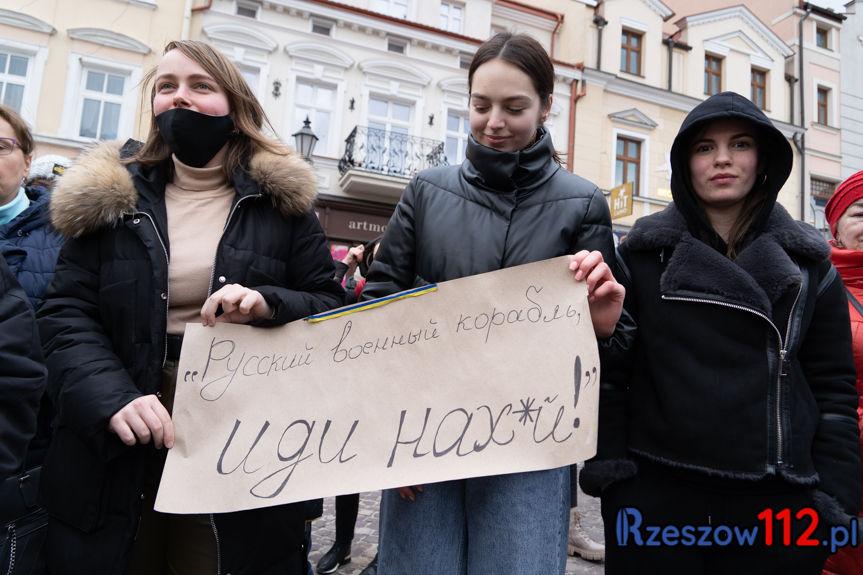 artmo
HiT
„Русский военный корабль,
иди нах*й!”
Rzeszow112.pl